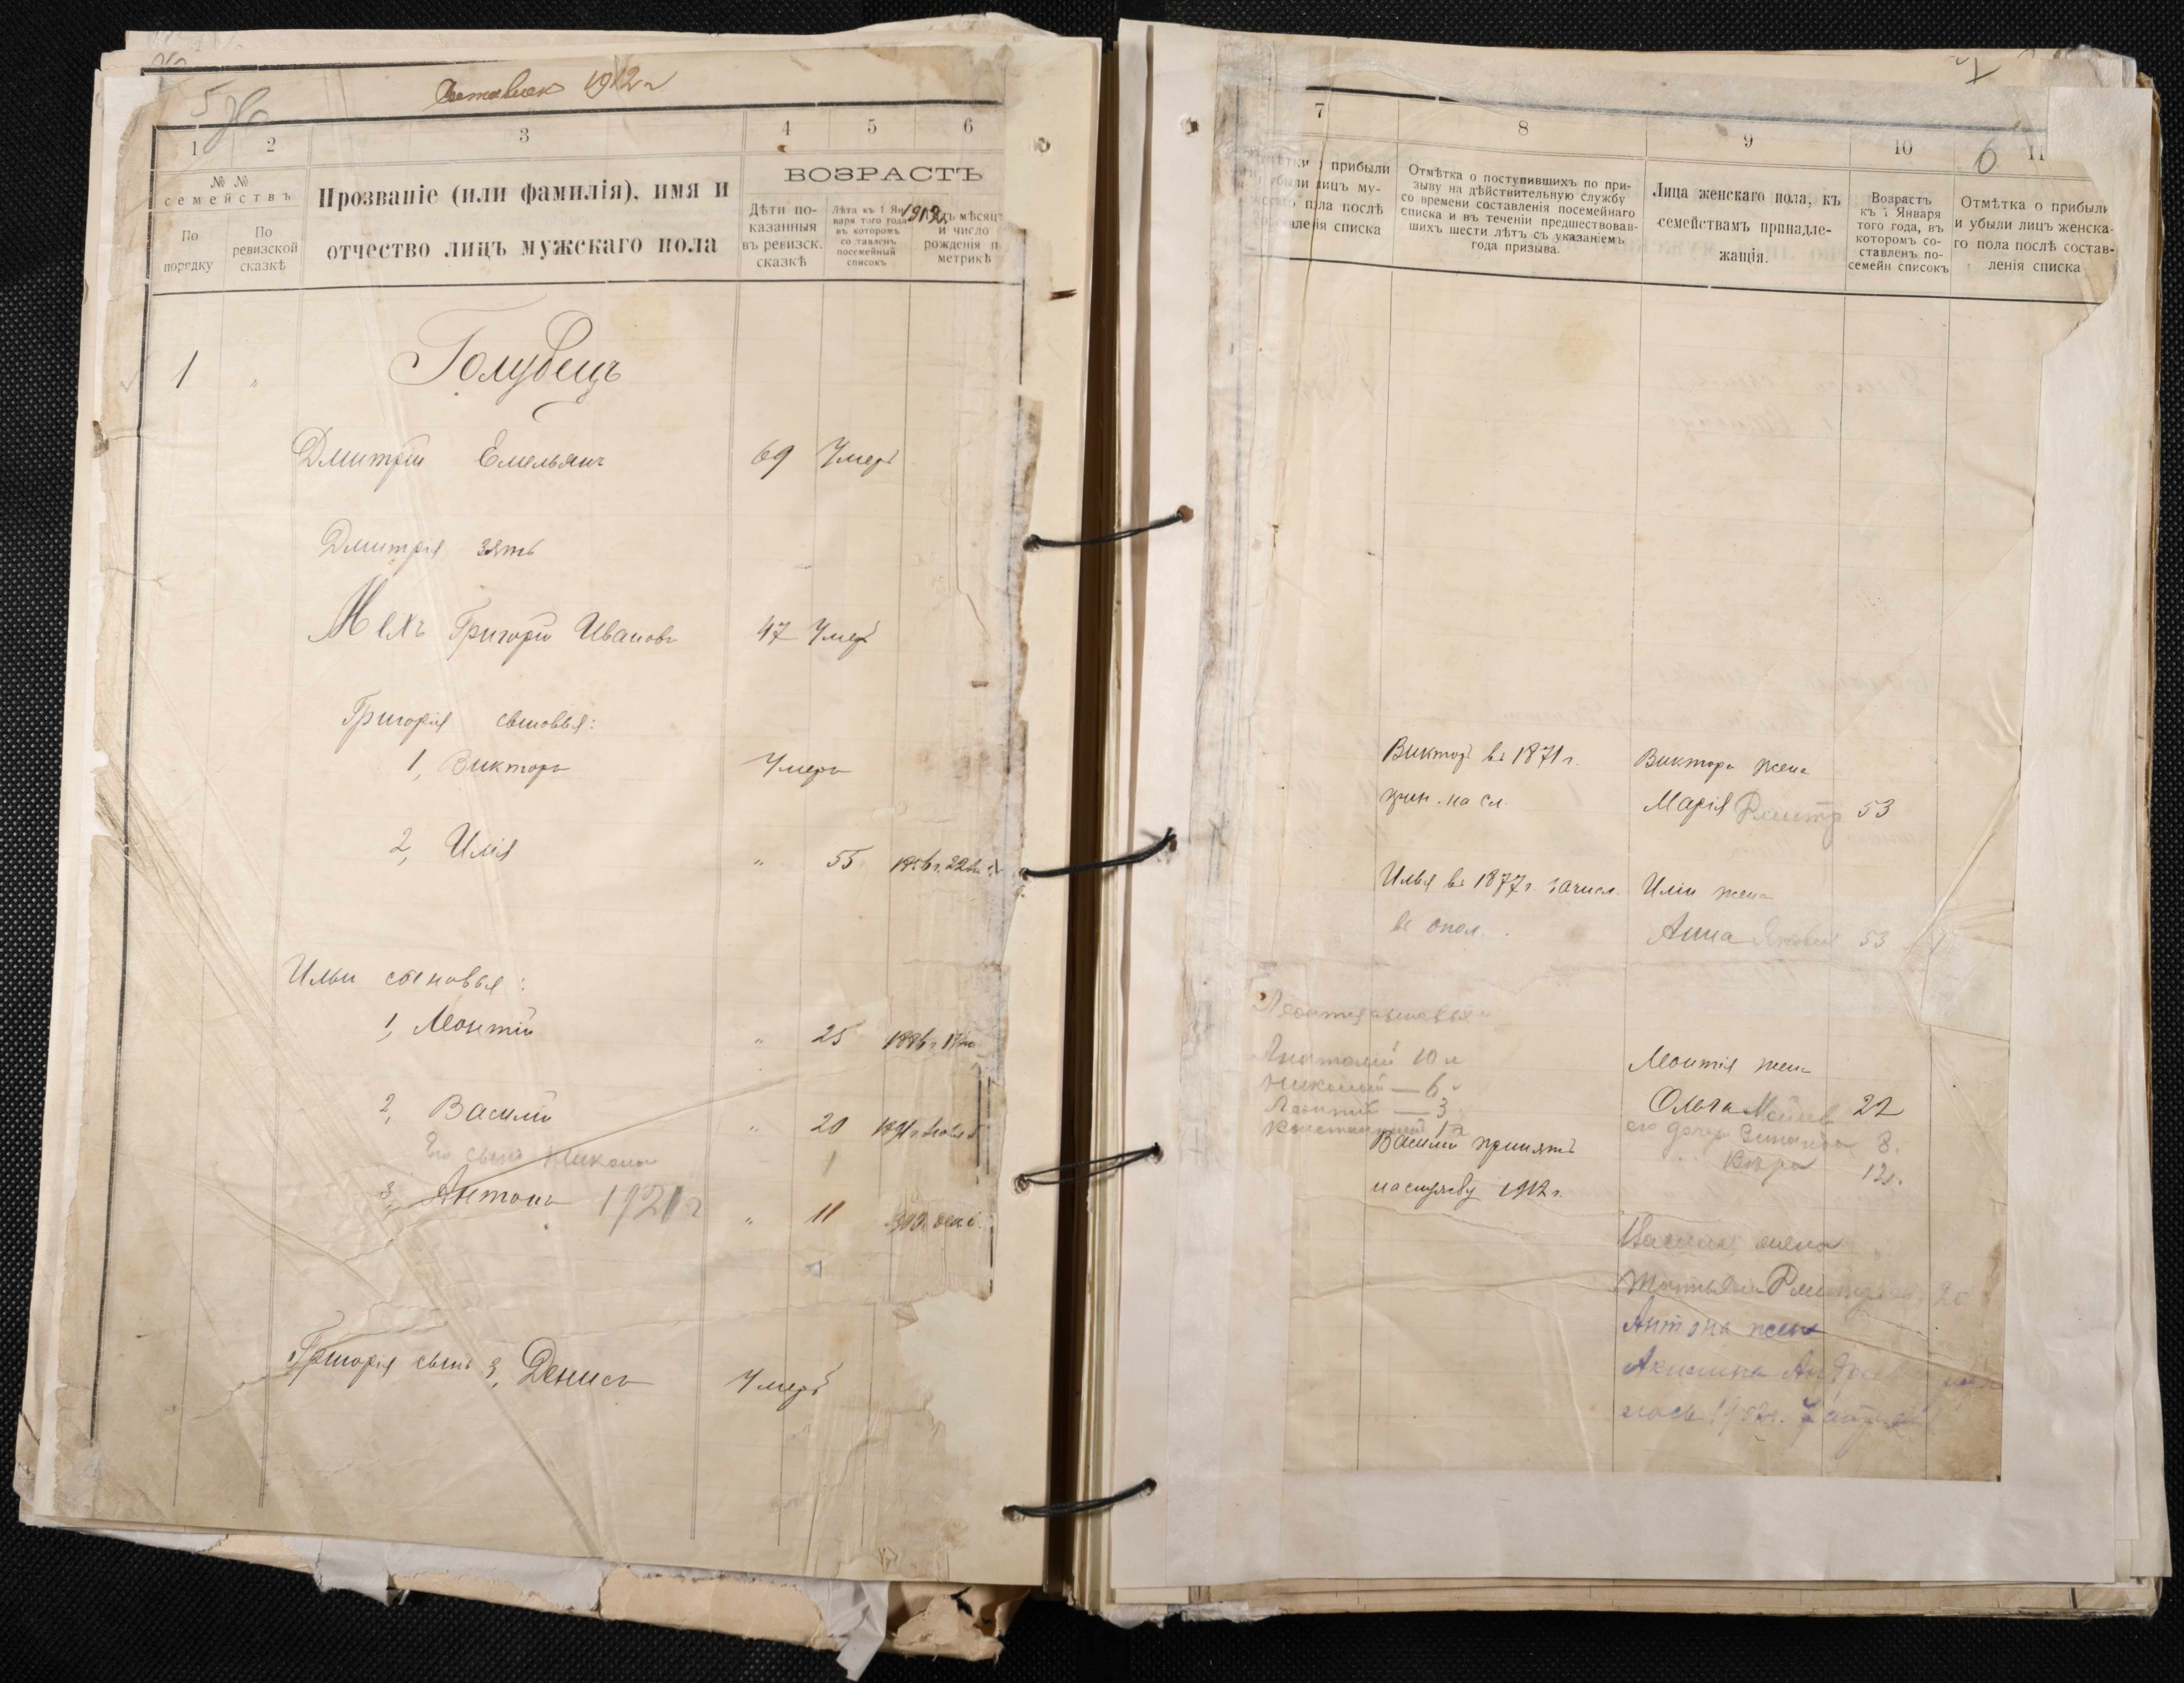 1912 г
5 об
1
2
3
4
5
6
№ №
семействъ
По
порядку
По
ревизской
сказкѣ
Прозваніе (или фамилія), имя и
отчество лицъ мужскаго пола
ВОЗРАСТЪ
Дѣти по-
казанныя
въ ревизск.
сказкѣ
Лѣта къ 1 Ян-
варя того года
въ которомъ
составленъ
посемейный
списокъ
1912
мѣсяцъ
и число
рожденія п
метрикѣ
1 "
Голубецъ
Дмитрій Емельянъ 69 Умеръ
Дмитрія зять
Мехъ Григорій Ивановъ 47 Умеръ
Григорія сыновья:
1, Викторъ Умеръ
2, Илія " 55 1856 г. 22
Ильи сыновья:
1, Леонтій " 25 1886 г. 17
2, Василій " 20 1891 г.
Его сынъ Николай 1
3, Антонъ 1921 г " 11
Григорія сынъ 3, Денисъ Умеръ
7
8
9
10
11
6
прибыли
убыли лицъ му-
жскаго пола послѣ
составленія списка
Отмѣтка о поступившихъ по при-
зыву на дѣйствительную службу
со времени составленія посемейнаго
списка и въ теченіи предшествовав-
шихъ шести лѣтъ съ указаніемъ
года призыва.
Лица женскаго пола, къ
семействамъ принадле-
жащія.
Возрастъ
къ 1 Января
того года, въ
которомъ со-
ставленъ по-
семейн списокъ
Отмѣтка о прибыли
и убыли лицъ женска-
го пола послѣ состав-
ленія списка
Викторъ въ 1871 г. Виктора жена
на сл. Марія Дмитр 53
Илья въ 1877 г. зачисл. Иліи жена
въ опол. Анна 53
Леонтія сыновья
Анатолій 10 л
Николай — 6
Леонтій — 3
Константинъ 1 г
Леонтія жена
Ольга 22
его дочь Зинаида 8.
Вѣра 12.
Василій принятъ
на службу 1912 г.
Василія жена
Татьяна Дмитр 20
Антона жена
Акилина
1902 г.